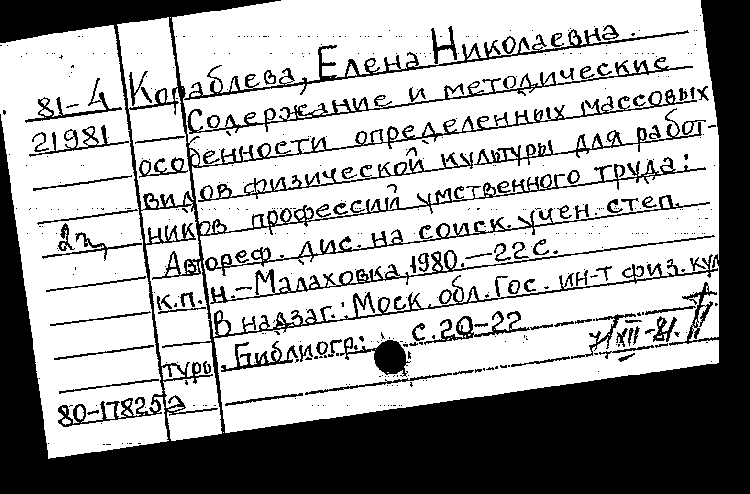 Кораблева, Елена Николаевна.
81-4
21981
Содержание и методические
особенности определенных массовых
видов физической культуры для работ-
ников профессий умственного труда:
2п
Автореф. дис. на соиск. учен. степ.
к.п.н. – Малаховка, 1980. – 22 с.
В надзаг.: Моск. обл. Гос. ин-т физ. куль
туры. Библиогр.: с. 20-22
7/XII-81.
80-17825